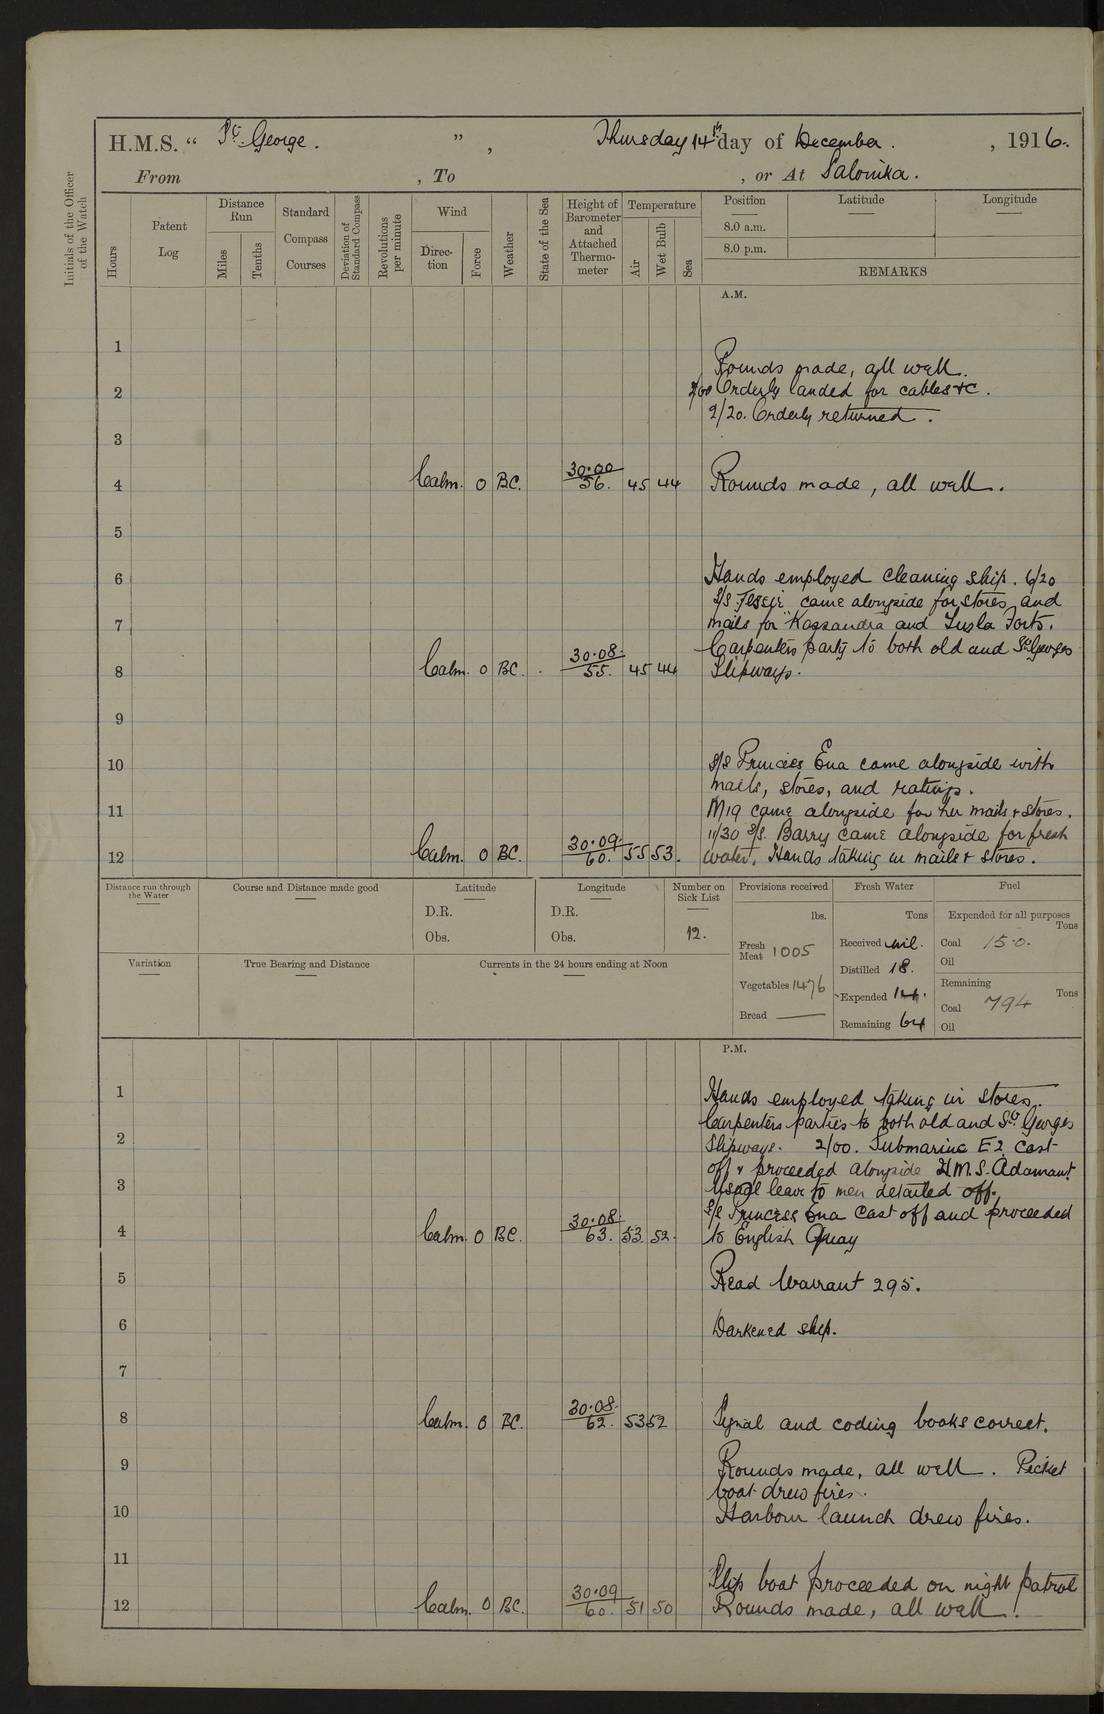 H.M.S. “ St. George. ” , Thursday 14th day of December. , 1916.
From , To , or At Salonika.
Initials of the Officer of the Watch
Hours
Patent Log
Distance Run
Miles
Tenths
Standard Compass Courses
Deviation of Standard Compass
Revolutions per minute
Wind
Direction
Force
Weather
State of the Sea
Height of Barometer and Attached Thermometer
Temperature
Air
Wet Bulb
Sea
Position
8.0 a.m.
8.0 p.m.
Latitude
Longitude
REMARKS
A.M.
1
Rounds made, all well.
2 2/00 Orderly landed for cables &c.
2/20. Orderly returned.
3
4 Calm. 0 BC. 30.00 / 56. 45 44 Rounds made, all well.
5
6 Hands employed cleaning ship. 6/20
S/S came alongside for stores and
7 mails for Kassandra and Tusla Forts.
Carpenters party to both old and St Georges
8 Calm. 0 BC. 30.08. / 55. 45 44 Slipways.
9
10 S/S Princess Ena came alongside with
mails, stores, and ratings.
11 M19 came alongside for her mails & stores.
11/30 S/S. Barry came alongside for fresh
12 Calm. 0 BC. 30.09. / 60. 55 53. water. Hands taking in mails & stores.
Distance run through the Water
Course and Distance made good
Latitude
D.R.
Obs.
Longitude
D.R.
Obs.
Number on Sick List
12.
Provisions received
lbs.
Fresh Meat 1005
Vegetables 1476
Bread —
Fresh Water
Tons
Received nil.
Distilled 18.
Expended 14.
Remaining 64
Fuel
Expended for all purposes
Tons
Coal 15.0.
Oil
Remaining
Tons
Coal 794
Oil
Variation
True Bearing and Distance
Currents in the 24 hours ending at Noon
P.M.
1 Hands employed taking in stores.
Carpenters parties to both old and St. Georges
2 Slipways. 2/00. Submarine E2 cast
off & proceeded alongside H.M.S. Adamant
3 Usual leave to men detailed off.
S/S Princess Ena Cast off and proceeded
4 Calm. 0 BC. 30.08. / 63. 53. 52. to English Quay
5 Read Warrant 295.
6 Darkened ship.
7
8 Calm. 0 BC. 30.08. / 62. 53 52 Signal and coding books correct.
9 Rounds made, all well. Picket
boat drew fires.
10 Harbour launch drew fires.
11
Slip boat proceeded on night patrol
12 Calm. 0 BC. 30.09 / 60. 51 50 Rounds made, all well.